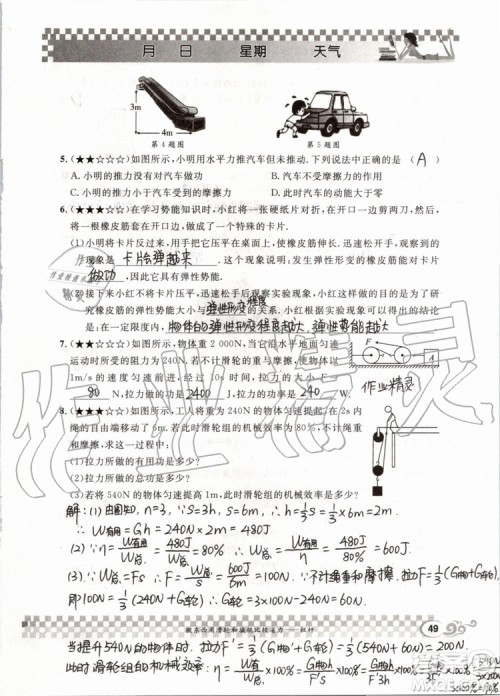 月 日 星期 天气
3m
4m
第4题图
第5题图
5.(★★☆☆☆)如图所示,小明用水平力推汽车但未推动.下列说法中正确的是 ( A )
A.小明的推力没有对汽车做功 B.汽车不受摩擦力的作用
C.小明的推力小于汽车受到的摩擦力 D.此时汽车的动能大于零
6.(★★★☆☆)在学习势能知识时,小红将一张硬纸片对折,在开口一边剪两刀,然后,
将一根橡皮筋套在开口边,做成了一个特殊的卡片.
(1)小明将卡片反过来,用手把它压平在桌面上,使橡皮筋伸长.迅速松开手,观察到
的现象是 卡片会弹起来 .这个现象说明:发生弹性形变的橡皮筋能对卡片
做功 ,因此它具有弹性势能.
(2)接下来小红不将卡片压平,迅速松手后观察实验现象,小红做这样的目的是为了研
究橡皮筋的弹性势能与 弹性形变程度 的关系.小红根据实验现象可以得出的结论
是:在一定限度内, 物体的弹性形变程度越大,弹性势能越大 .
7.(★★★☆☆)如图所示,物体重2 000N,当它沿水平地面匀速
运动时所受的阻力为240N.若不计滑轮的重与摩擦,使物体以
1m/s的速度匀速前进,经过10s的时间,拉力的大小F=
80 N,拉力做的功是 2400 J,拉力的功率是 240 W.
F
A
作业精灵
8.(★★★☆☆)如图所示,工人将重为240N的物体匀速提升起来,在2s内
绳的自由端移动了6m.若此时滑轮组的机械效率为80%,不计绳重
和摩擦,求这一过程中:
(1)拉力所做的有用功是多少?
(2)拉力所做的总功是多少?
(3)若将540N的物体匀速提高1m,此时滑轮组的机械效率是多少?
解:(1)由图知,n=3,∵S=3h,S=6m,∴h=⅓S=⅓×6m=2m.
∴W有用=Gh=240N×2m=480J
(2)∵η=W有用/W总=480J/W总=80%,∴W总=W有用/η=480J/80%=600J.
(3)∵W总=Fs ∴F=W总/S=600J/6m=100N.∵不计绳重和摩擦,拉力F=⅓(G物+G轮)
即100N=⅓(240N+G轮) ∴G轮=3×100N-240N=60N.
49
当提升540N的物体时,拉力F′=⅓(G物+G轮)=⅓(540N+60N)=200N.
此时滑轮组的机械效率:η=W有/W总×100%=G物h/F′S×100%=